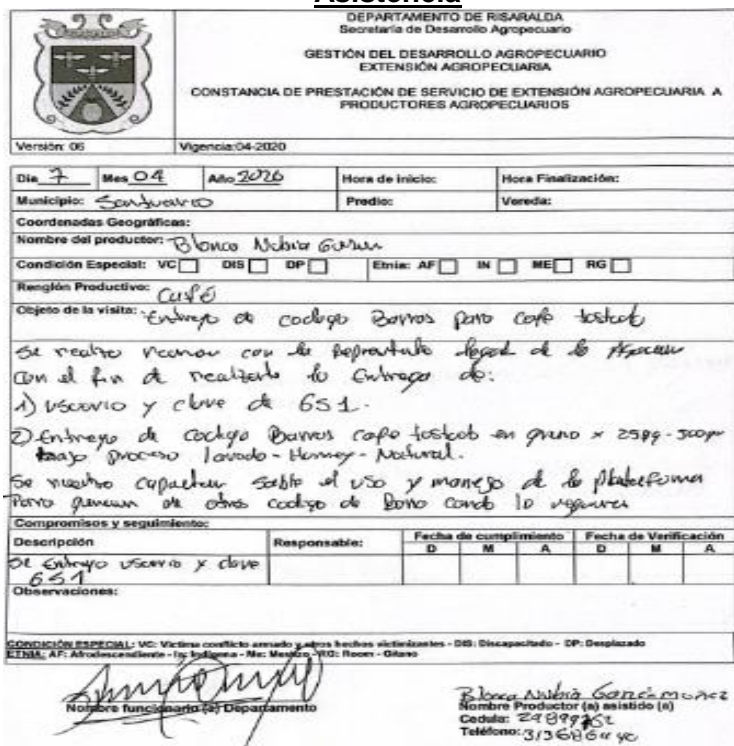 Asistencia
DEPARTAMENTO DE RISARALDA
Secretaría de Desarrollo Agropecuario
GESTIÓN DEL DESARROLLO AGROPECUARIO
EXTENSIÓN AGROPECUARIA
CONSTANCIA DE PRESTACIÓN DE SERVICIO DE EXTENSIÓN AGROPECUARIA A
PRODUCTORES AGROPECUARIOS
Versión: 06 Vigencia:04-2020
Dia 7 Mes 04 Año 2026 Hora de inicio: Hora Finalización:
Municipio: Santuario Predio: Vereda:
Coordenadas Geográficas:
Nombre del productor: Blanca Nubia
Condición Especial: VC DIS DP Etnia: AF IN ME RG
Renglón Productivo: Café
Objeto de la visita: Entrega de codigo Barras para café tostado
Se realizo reunion con la legal de la
Con el fin de realizarle la Entrega de:
1) Usuario y clave de GS1.
2) Entrega de codigo Barras café tostado en grano x 250g - 500gr
bajo proceso lavado - Honney - Natural.
Se capacitacion sobre el uso y manejo de la plataforma
Para de otros codigo de Barra cuando lo requiera
Compromisos y seguimiento:
Descripción Responsable: Fecha de cumplimiento Fecha de Verificación
D M A D M A
Se Entrego usuario y clave
GS1
Observaciones:
CONDICIÓN ESPECIAL: VC: Victima conflicto armado y otros hechos victimizantes - DIS: Discapacitado - DP: Desplazado
ETNIA: AF: Afrodescendiente - In: Indígena - Me: Mestizo - RG: Room - Gitano
Nombre funcionario (a) Departamento
Blanca Nubia
Nombre Productor (a) asistido (a)
Cedula:
Teléfono: